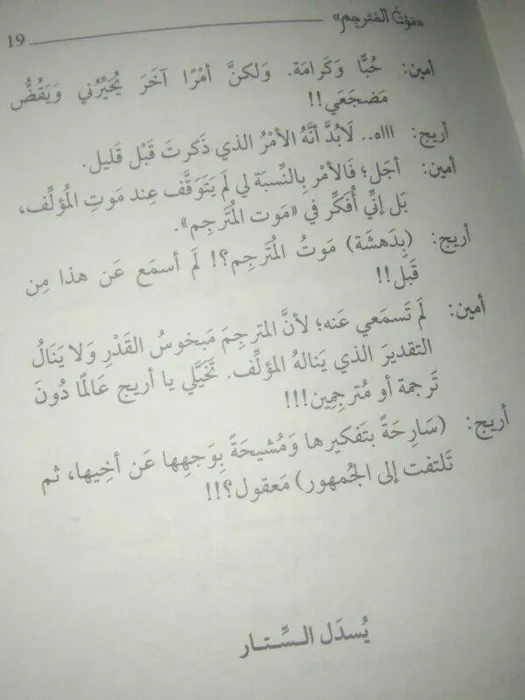 «مَوْتُ المُتَرجِم» 19
أمين: حُبًّا وَكَرامَة. وَلكنَّ أمْرًا آخَرَ يُحَيِّرُني وَيَقُضُّ
مَضجَعَي!!
أريج: اااه.. لَابُدَّ أنَّهُ الأمْرُ الذي ذَكرتَ قَبْل قَليل.
أمين: أجَل؛ فَالأمْر بِالنِّسبَة لي لَم يَتَوَقَّف عِند مَوتِ المُؤلِّف،
بَل إنِّي أُفَكِّر في «مَوت المُتَرجِم».
أريج: (بِدَهشَة) مَوتُ المُترجِم؟! لَم أسمَع عَن هذا مِن
قَبل!!
أمين: لَم تَسمَعي عَنه؛ لأنَّ المترجِمَ مَبخوسُ القَدْرِ وَلا يَنَالُ
التقديرَ الذي يَنالهُ المؤلِّف. تَخَيَّلي يا أريج عَالمًا دُونَ
تَرجمة أو مُترجِمِين!!!
أريج: (سَارِحَةً بتَفكيرها وَمُشيحَةً بِوَجهِها عَن أخِيها، ثم
تَلتفت إلى الجُمهور) مَعقول؟!!
يُسدَل السِّتـار